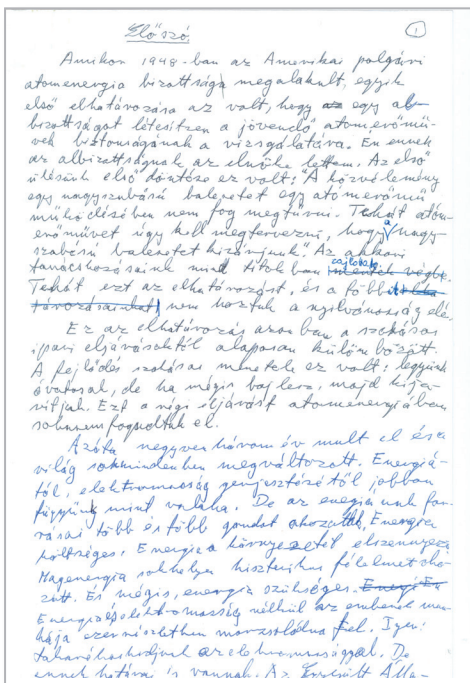 Előszó
1
Amikor 1948-ban az Amerikai polgári
atomenergia bizottsága megalakult, egyik
első elhatározása az volt, hogy az egy al-
bizottságot létesítsen a jövendő atomerőmű-
vek biztonságának a vizsgálatára. Én ennek
az albizottságnak az elnöke lettem. Az első
ülésünk első döntése ez volt: "A közvélemény
egy nagyszabású balesetet egy atomerőmű
működésében nem fog megtűrni. Tehát atom-
erőművet úgy kell megtervezni, hogy a nagy-
szabású balesetet kizárjunk." Az akkori
tanácskozásaink mind titokban zajlottak
Tehát ezt az elhatározást, és a többit
nem hoztuk a nyilvánosság elé.
Ez az elhatározás azonban a szokásos
ipari eljárásoktól alaposan különbözött.
A fejlődés szokásos menete ez volt: legyünk
óvatosak, de ha mégis baj lesz, majd kija-
vítjuk. Ezt a régi eljárást atomenergiában
sohasem fogadtuk el.
Azóta negyvenhárom év mult el és a
világ sokmindenben megváltozott. Energiá-
tól, elektromosság gerjesztésétől jobban
függünk mint valaha. De az energiának for-
rásai több és több gondot okozták. Energia
költséges. Energia a környezetét elszennyezi.
Magenergia sokhelyen hisztérikus félelmet ho-
zott. És mégis, energia szükséges.
Energia és elektromosság nélkül az emberek mun-
kája ezerrészletben morzsolódna fel. Igen:
takarékoskodjunk az elektromossággal. De
ennek határai is vannak. Az Egyesült Álla-